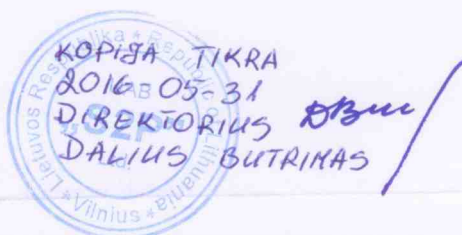 KOPIJA TIKRA
2016-05-31
DIREKTORIUS
DALIUS BUTRIMAS
Lietuvos Respublika * Republic of Lithuania * Vilnius *